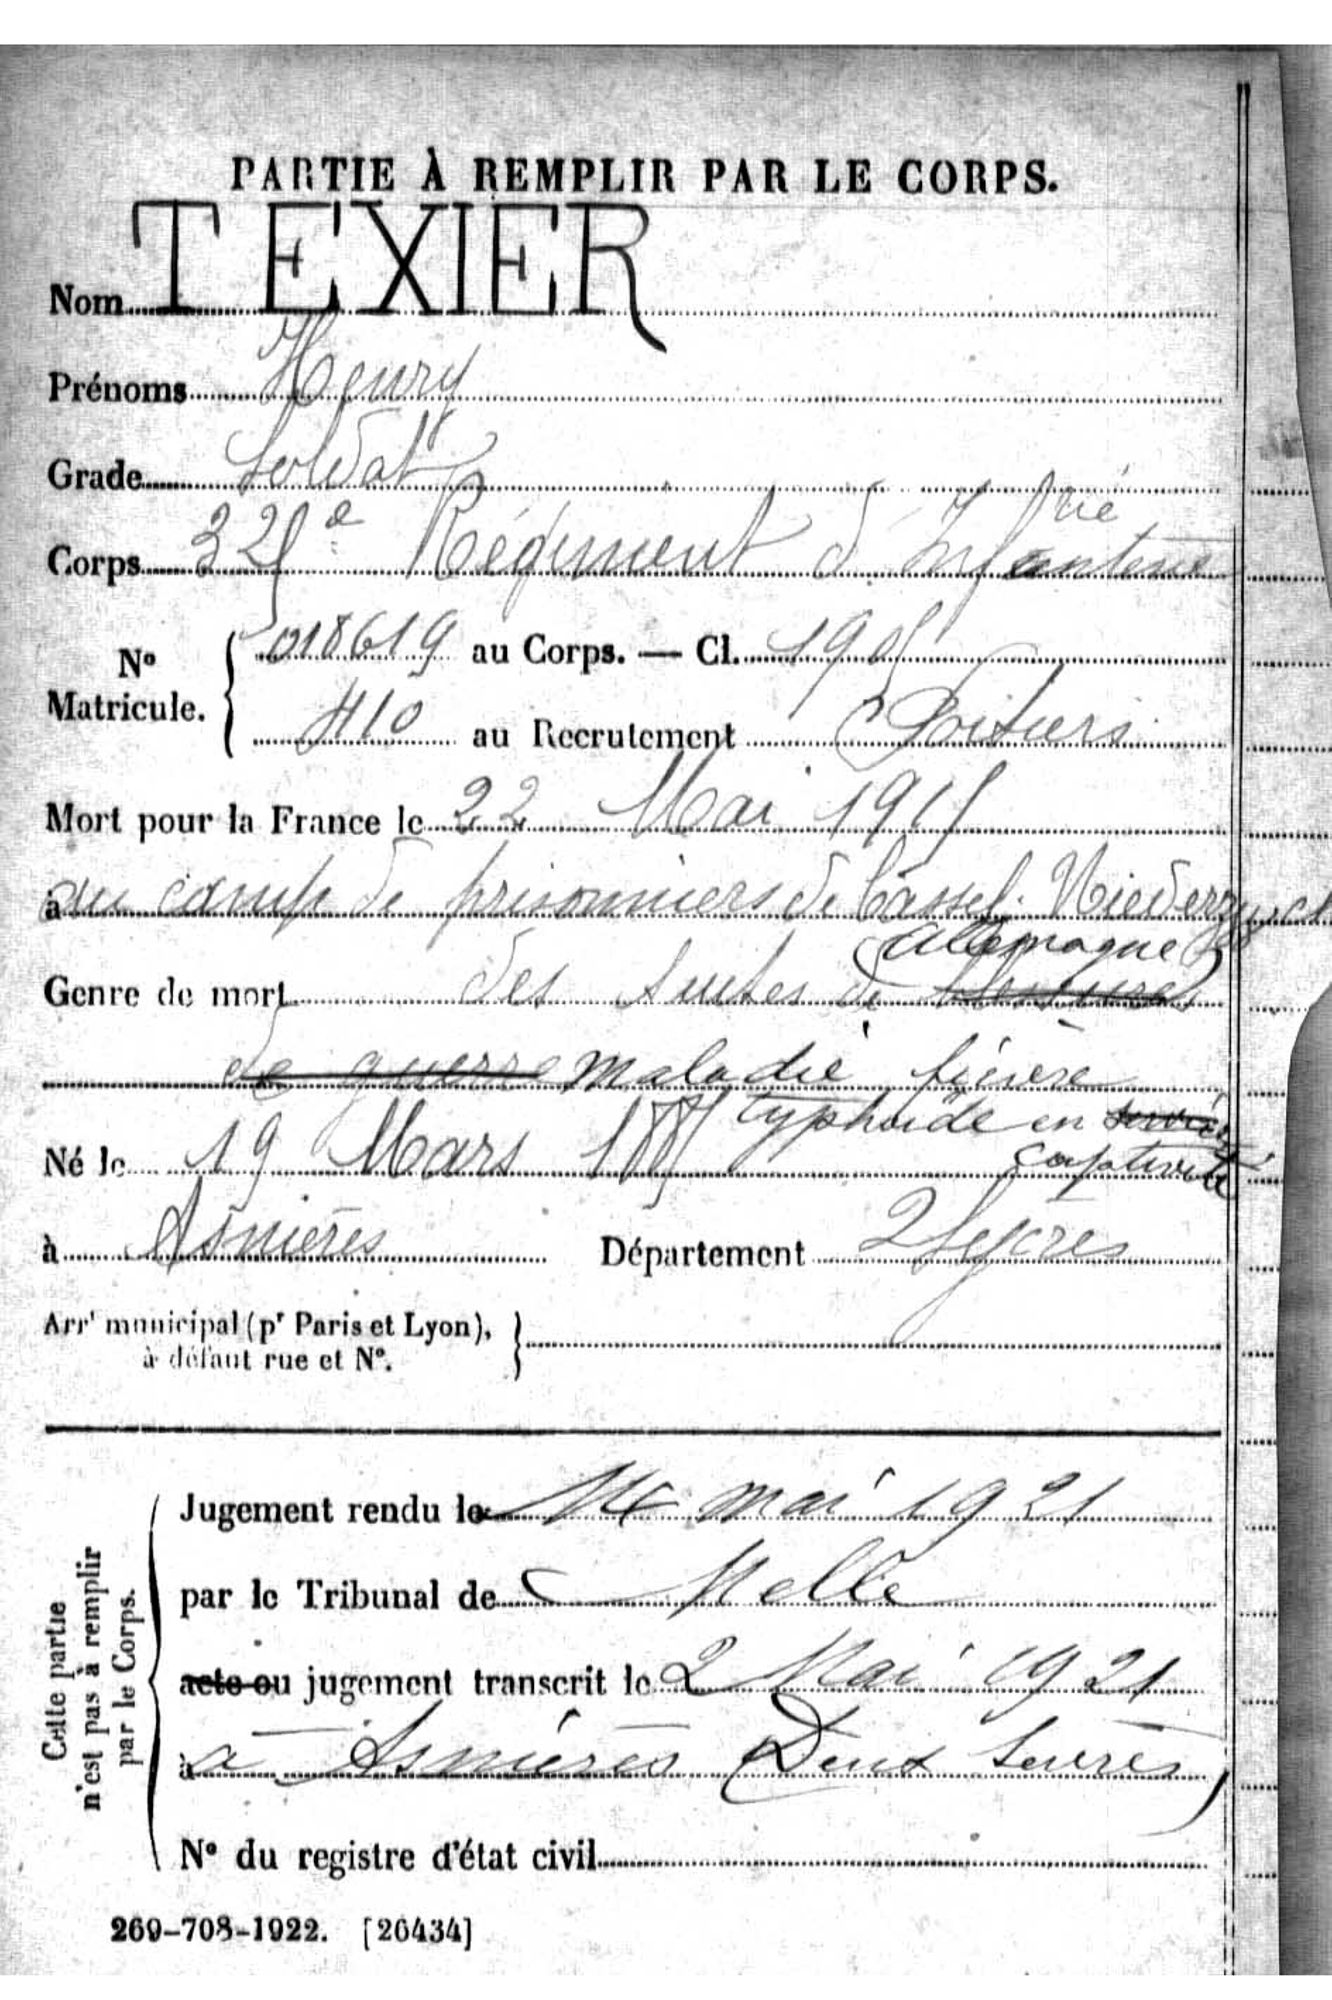 PARTIE À REMPLIR PAR LE CORPS.
Nom TEXIER
Prénoms Henry
Grade Soldat
Corps 325e Régiment d'Infanterie
rie
N° Matricule. { 018619 au Corps. — Cl. 1905
410 au Recrutement Poitiers
Mort pour la France le 22 Mai 1915
à au camp de prisonniers de Cassel. Niederzwehren
(Allemagne)
Genre de mort des suites de blessures
de guerre maladie fièvre
typhoïde en service
captivité
Né le 19 Mars 1885
à Asnières Département 2 Sèvres
Arrt municipal (pr Paris et Lyon), à défaut rue et N°. }
Cette partie n'est pas à remplir par le Corps.
Jugement rendu le 14 mai 1921
par le Tribunal de Melle
acte ou jugement transcrit le 2 Mai 1921
à à Asnières (Deux Sevres)
N° du registre d'état civil
269-708-1922. [26434]